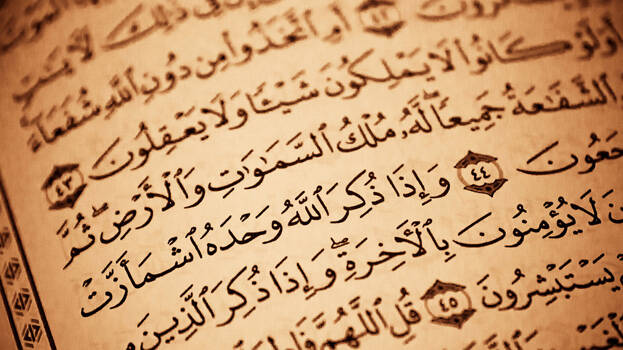 فِي ذَٰلِكَ لَآيَٰتٍ
٤٢ أَمِ ٱتَّخَذُوا۟ مِن دُونِ ٱللَّهِ شُفَعَآءَ
أَوَلَوْ كَانُوا۟ لَا يَمْلِكُونَ شَيْـًٔا وَلَا يَعْقِلُونَ ٤٣
ٱلشَّفَٰعَةُ جَمِيعًا ۖ لَّهُۥ مُلْكُ ٱلسَّمَٰوَٰتِ وَٱلْأَرْضِ ۖ ثُمَّ
جَعُونَ ٤٤ وَإِذَا ذُكِرَ ٱللَّهُ وَحْدَهُ ٱشْمَأَزَّتْ
لَا يُؤْمِنُونَ بِٱلْأَخِرَةِ ۖ وَإِذَا ذُكِرَ ٱلَّذِينَ
يَسْتَبْشِرُونَ ٤٥ قُلِ ٱللَّهُمَّ فَاطِرَ